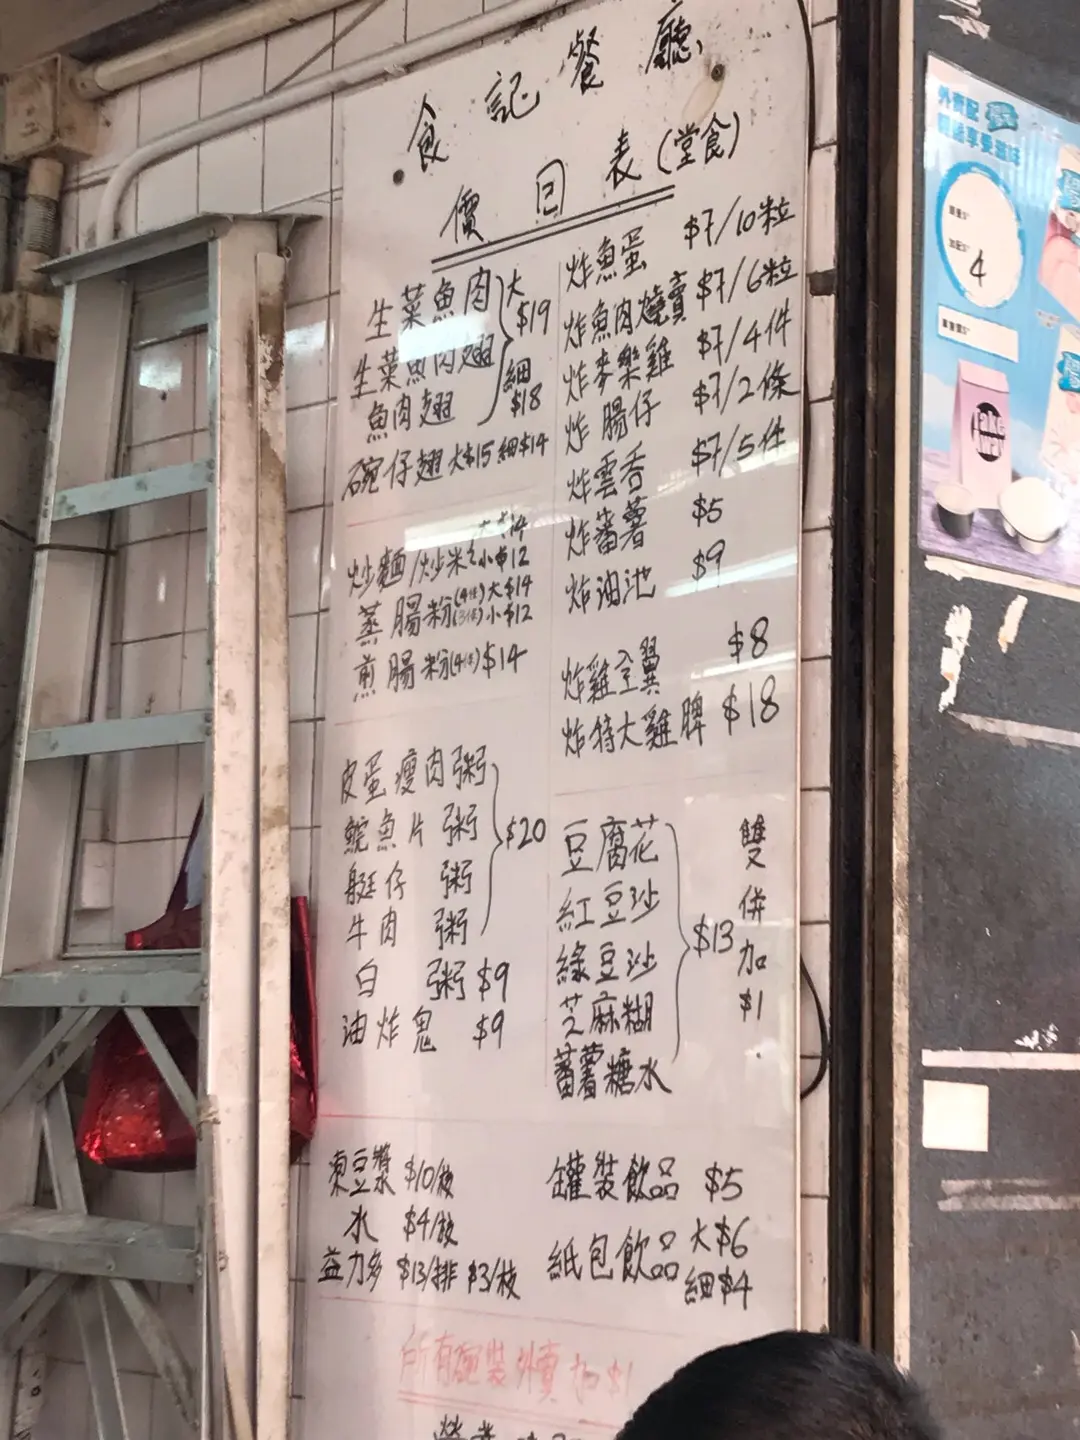 食記餐廳
價目表(堂食)
生菜魚肉
生菜魚肉翅
魚肉翅
大
$19
細
$18
碗仔翅 大$15 細$14
大$14
炒麵/炒米 小$12
蒸腸粉(4件)大$14
(3件)小$12
煎腸粉(4件)$14
皮蛋瘦肉粥
鯇魚片粥
艇仔粥
牛肉粥
$20
白粥 $9
油炸鬼 $9
炸魚蛋 $7/10粒
炸魚肉燒賣 $7/6粒
炸麥樂雞 $7/4件
炸腸仔 $7/2條
炸雲吞 $7/5件
炸蕃薯 $5
炸油池 $9
炸雞全翼 $8
炸特大雞脾 $18
豆腐花
紅豆沙
綠豆沙
芝麻糊
蕃薯糖水
$13
雙併加$1
凍豆漿 $10/枝
水 $4/枝
益力多 $13/排 $3/枝
罐裝飲品 $5
紙包飲品 大$6
細$4
所有碗裝外賣加$1
外賣配
享受滋味
4